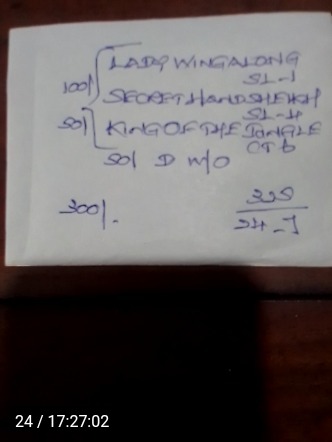 100/ LADY WINGALONG
S1-1
SECRET HAND SHEIKH
S1-4
50/ KING OF THE JUNGLE
CT 6
50/ D W/O
300/-
24-7
24 / 17:27:02